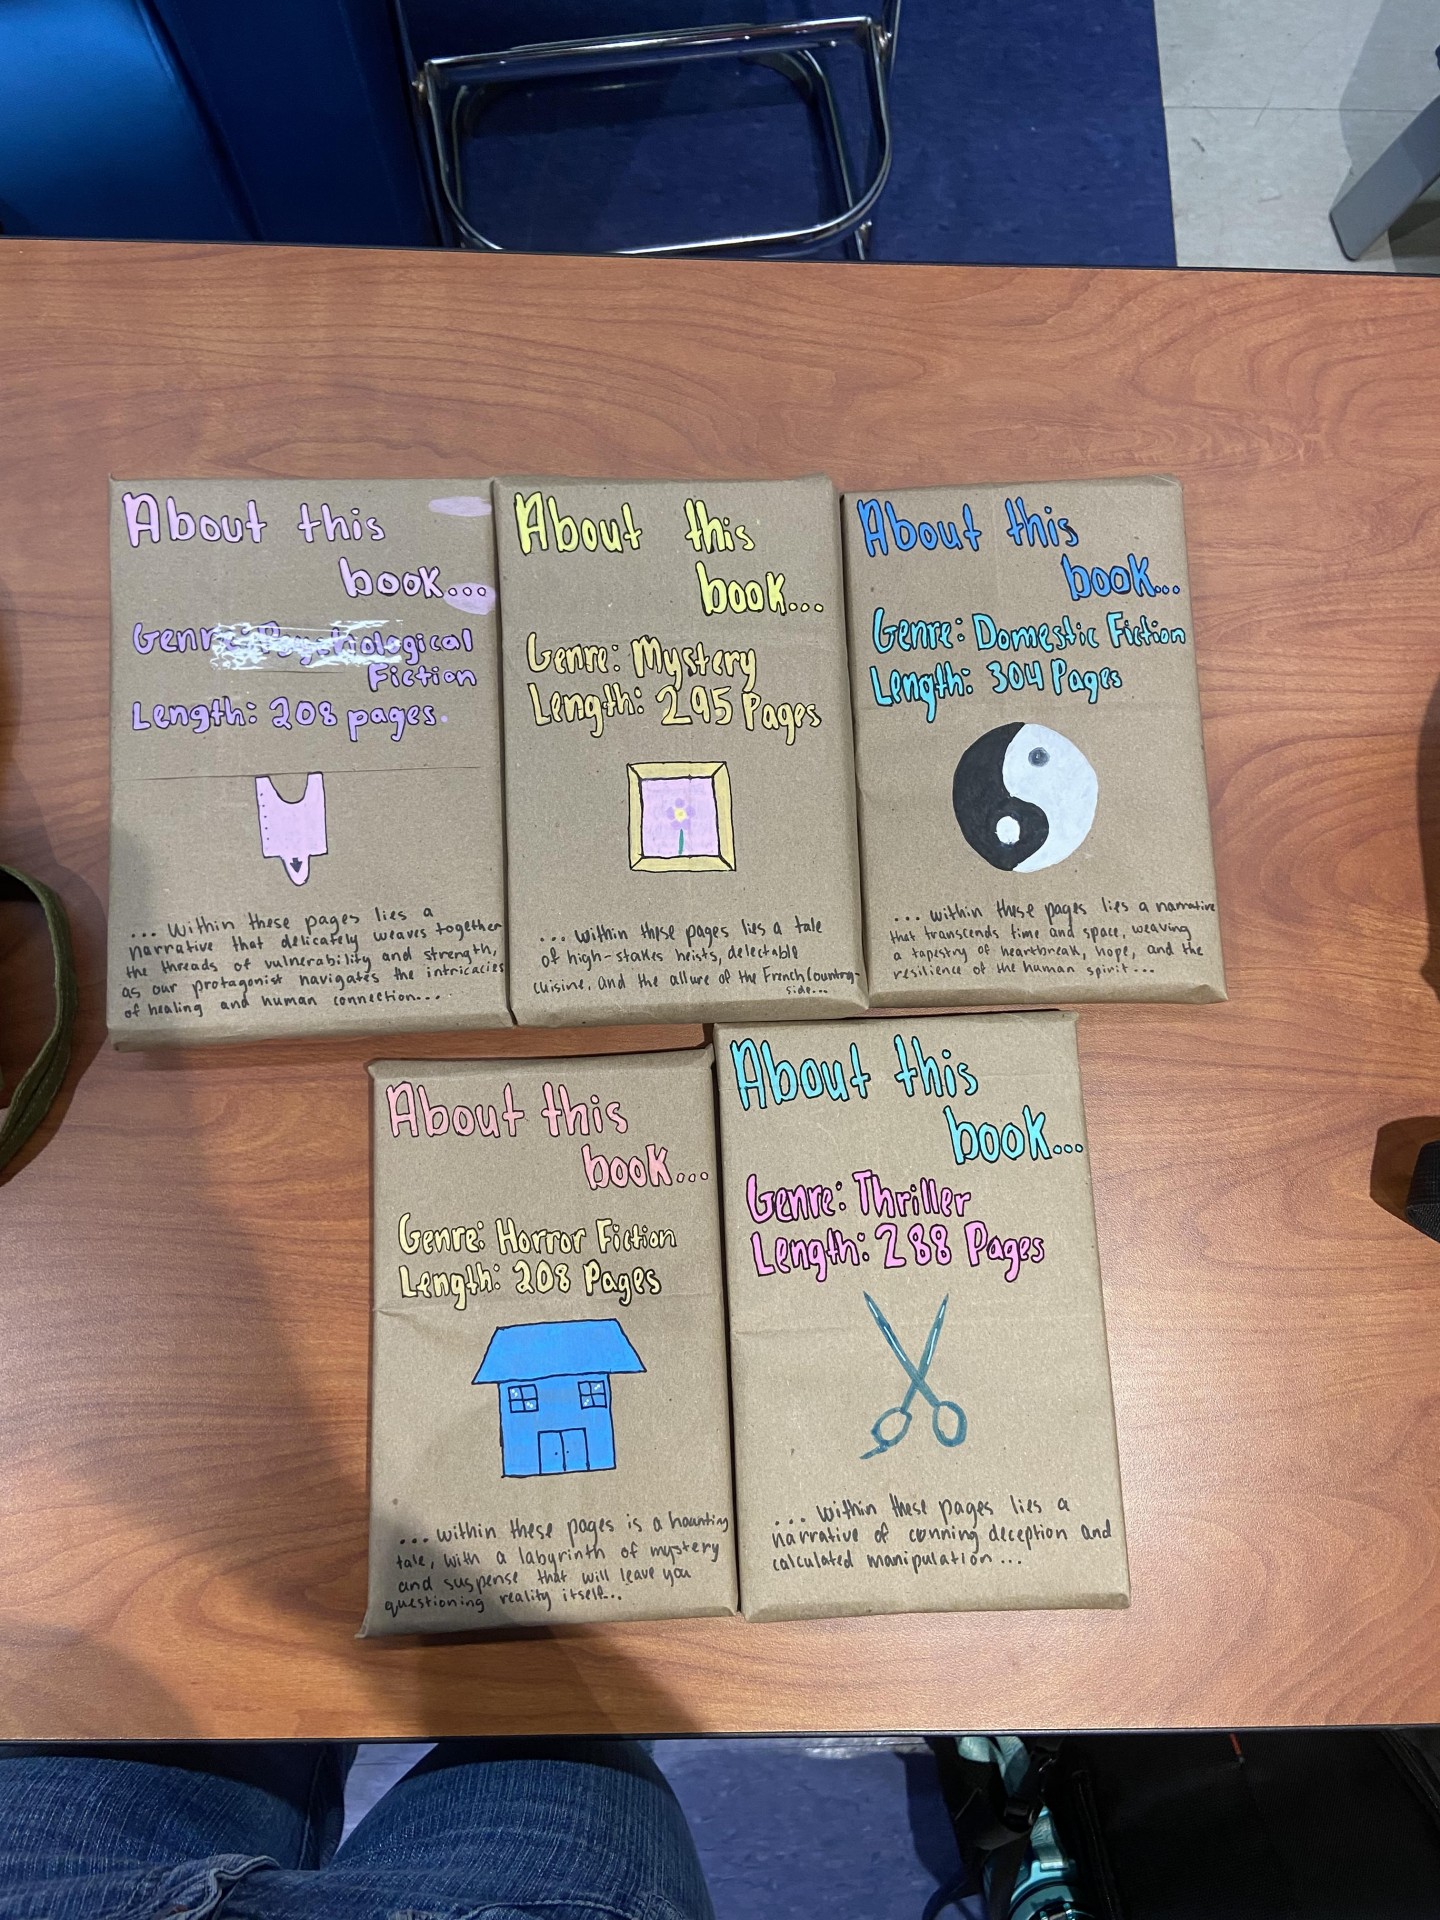 About this
book...
Genre: Psychological
Fiction
Length: 208 pages.
... Within these pages lies a
narrative that delicately weaves together
the threads of vulnerability and strength,
as our protagonist navigates the intricacies
of healing and human connection....
About this
book...
Genre: Mystery
Length: 295 Pages
... within these pages lies a tale
of high-stakes heists, delectable
cuisine, and the allure of the French Country-
side...
About this
book...
Genre: Domestic Fiction
Length: 304 Pages
... within these pages lies a narrative
that transcends time and space, weaving
a tapestry of heartbreak, hope, and the
resilience of the human spirit...
About this
book...
Genre: Horror Fiction
Length: 208 Pages
... within these pages is a haunting
tale, with a labyrinth of mystery
and suspense that will leave you
questioning reality itself...
About this
book...
Genre: Thriller
Length: 288 Pages
... within these pages lies a
narrative of cunning deception and
calculated manipulation ...